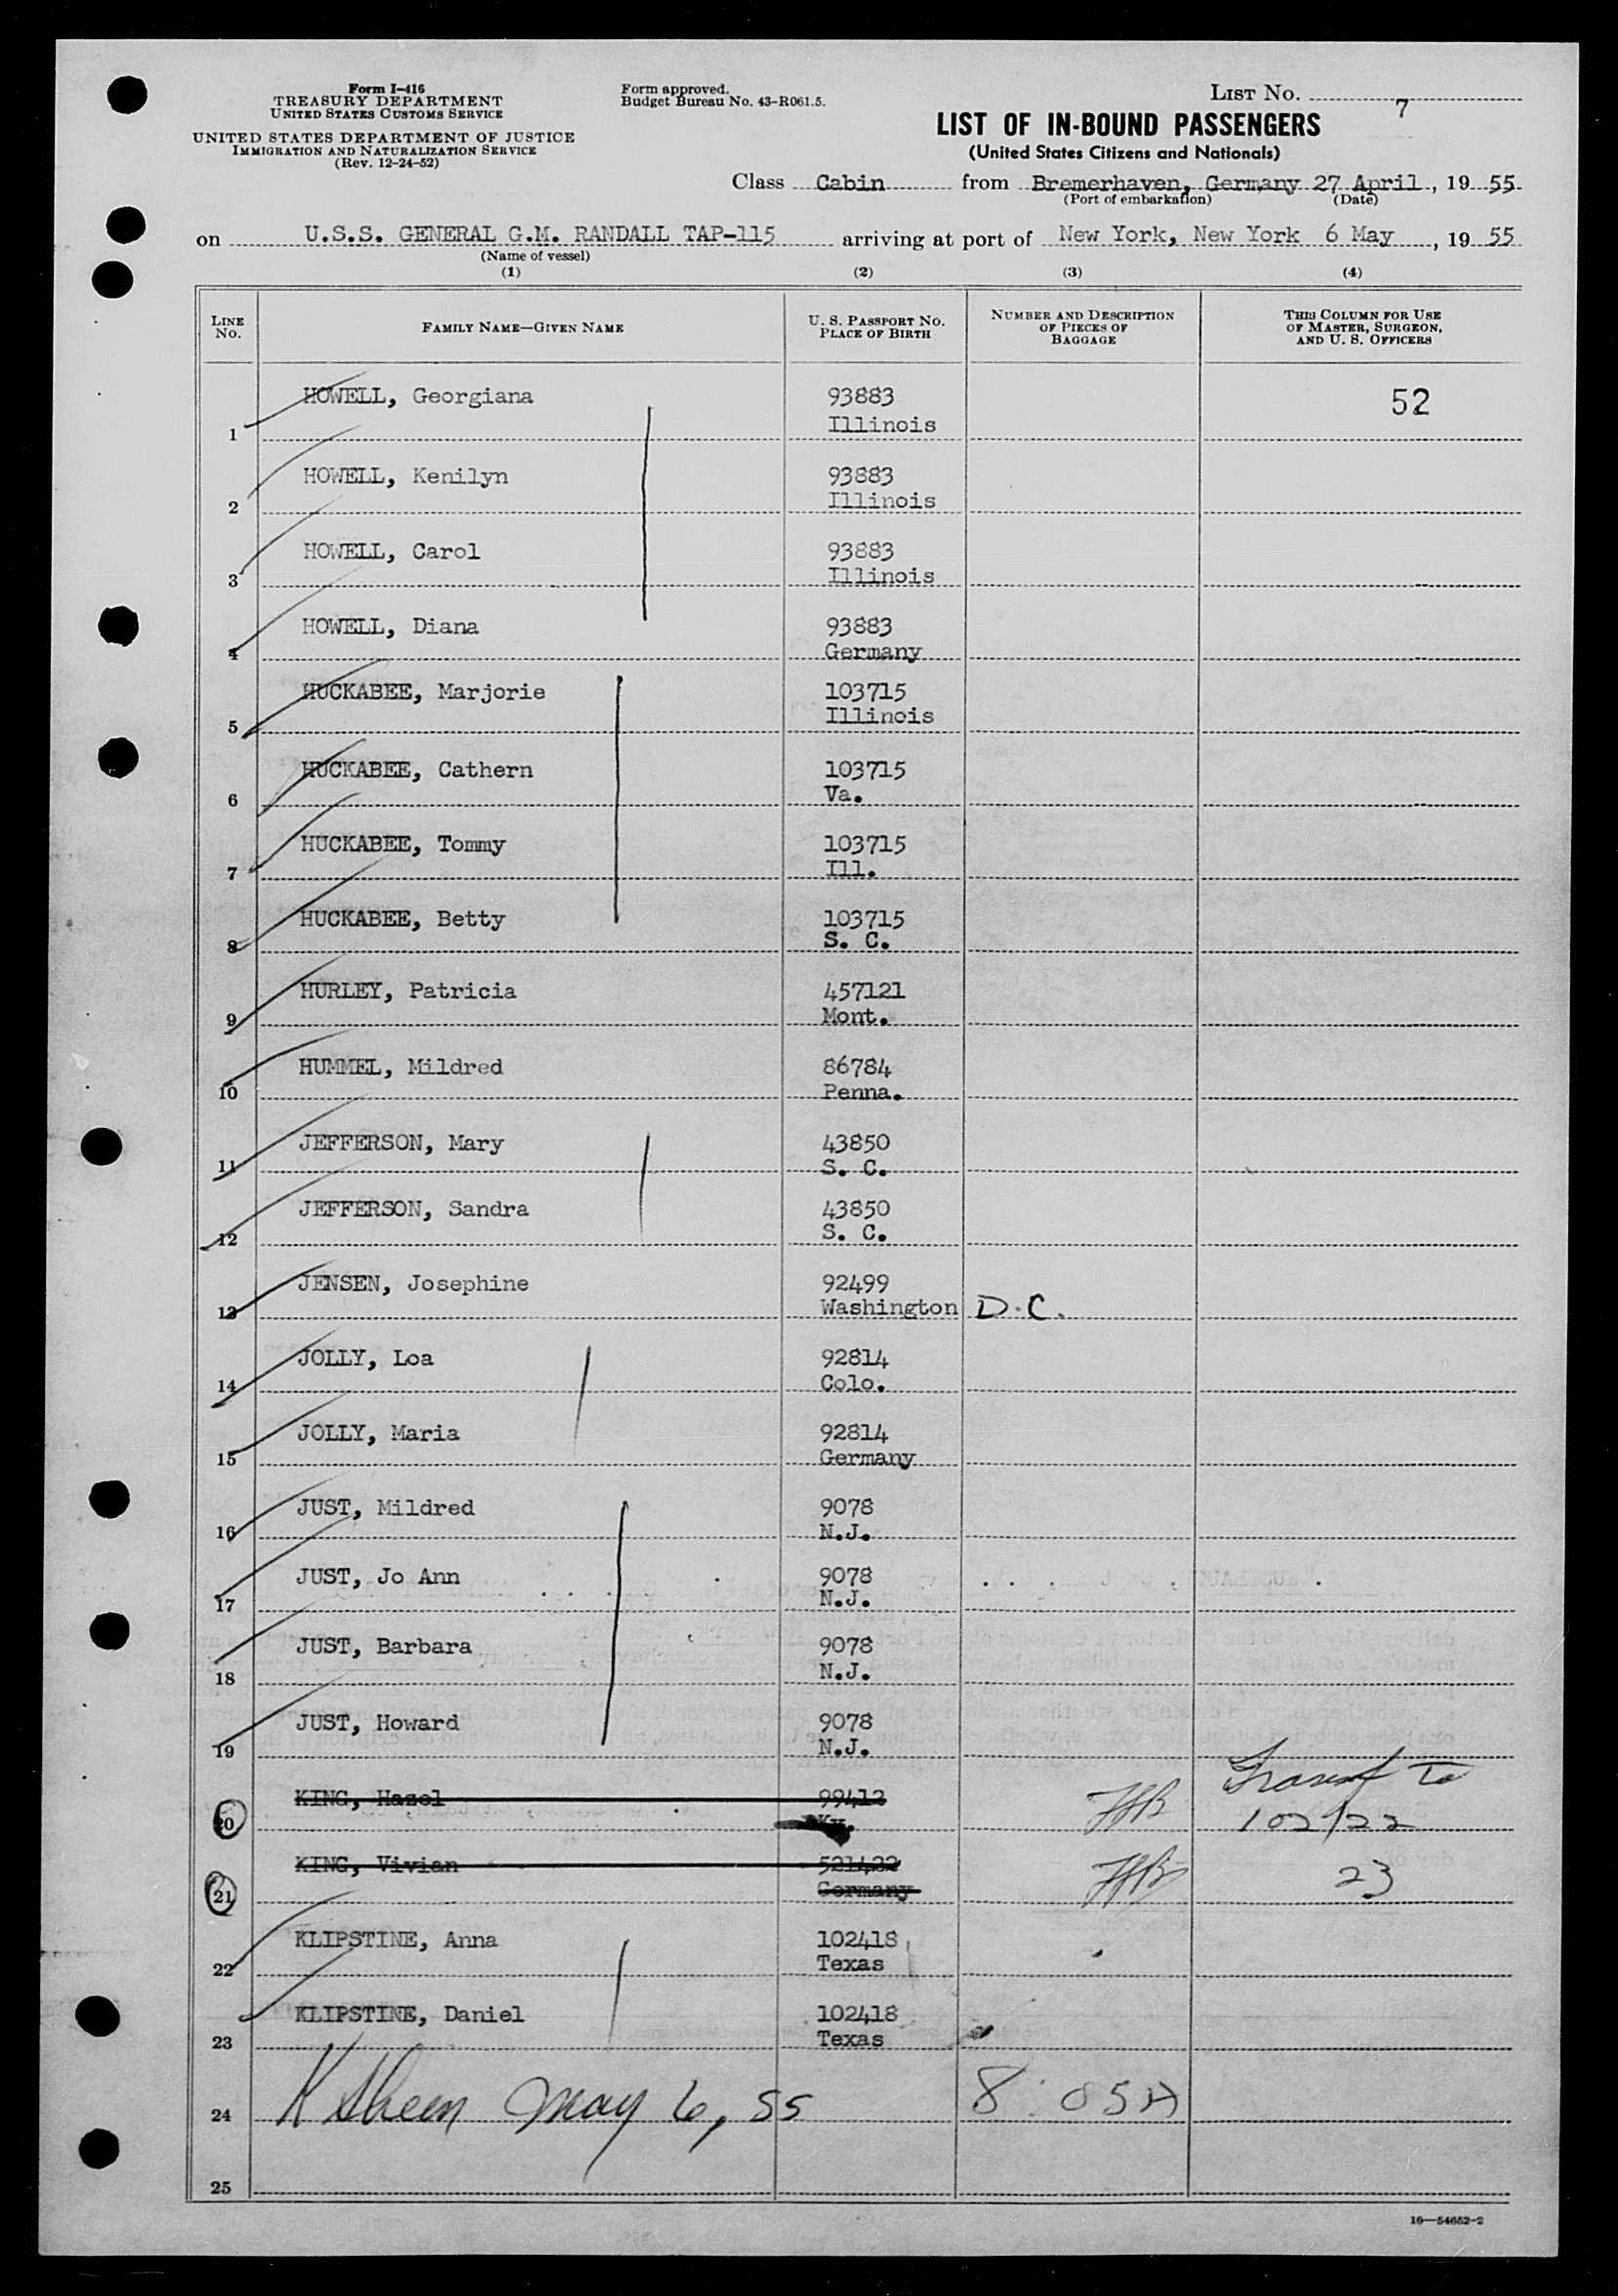 Form I-416
TREASURY DEPARTMENT
UNITED STATES CUSTOMS SERVICE
UNITED STATES DEPARTMENT OF JUSTICE
IMMIGRATION AND NATURALIZATION SERVICE
(Rev. 12-24-52)
Form approved.
Budget Bureau No. 43-R061.5.
LIST No. 7
LIST OF IN-BOUND PASSENGERS
(United States Citizens and Nationals)
Class Cabin from Bremerhaven, Germany 27 April, 19 55
(Port of embarkation) (Date)
on U.S.S. GENERAL G.M. RANDALL TAP-115 arriving at port of New York, New York 6 May, 19 55
(Name of vessel)
(1) (2) (3) (4)
LINE No. FAMILY NAME—GIVEN NAME U. S. PASSPORT No. PLACE OF BIRTH NUMBER AND DESCRIPTION OF PIECES OF BAGGAGE THIS COLUMN FOR USE OF MASTER, SURGEON, AND U. S. OFFICERS
HOWELL, Georgiana 93883 52
1 Illinois
HOWELL, Kenilyn 93883
2 Illinois
HOWELL, Carol 93883
3 Illinois
HOWELL, Diana 93883
4 Germany
HUCKABEE, Marjorie 103715
5 Illinois
HUCKABEE, Cathern 103715
6 Va.
HUCKABEE, Tommy 103715
7 Ill.
HUCKABEE, Betty 103715
8 S. C.
HURLEY, Patricia 457121
9 Mont.
HUMMEL, Mildred 86784
10 Penna.
JEFFERSON, Mary 43850
11 S. C.
JEFFERSON, Sandra 43850
12 S. C.
JENSEN, Josephine 92499
13 Washington D.C.
JOLLY, Loa 92814
14 Colo.
JOLLY, Maria 92814
15 Germany
JUST, Mildred 9078
16 N.J.
JUST, Jo Ann 9078
17 N.J.
JUST, Barbara 9078
18 N.J.
JUST, Howard 9078
19 N.J.
KING, Hazel 99412 Transf To
20 Ky. 102/22
KING, Vivian 521422
21 Germany 23
KLIPSTINE, Anna 102418
22 Texas
KLIPSTINE, Daniel 102418
23 Texas
24 K Sheen May 6, 55 8:05A
25
16—54652-2